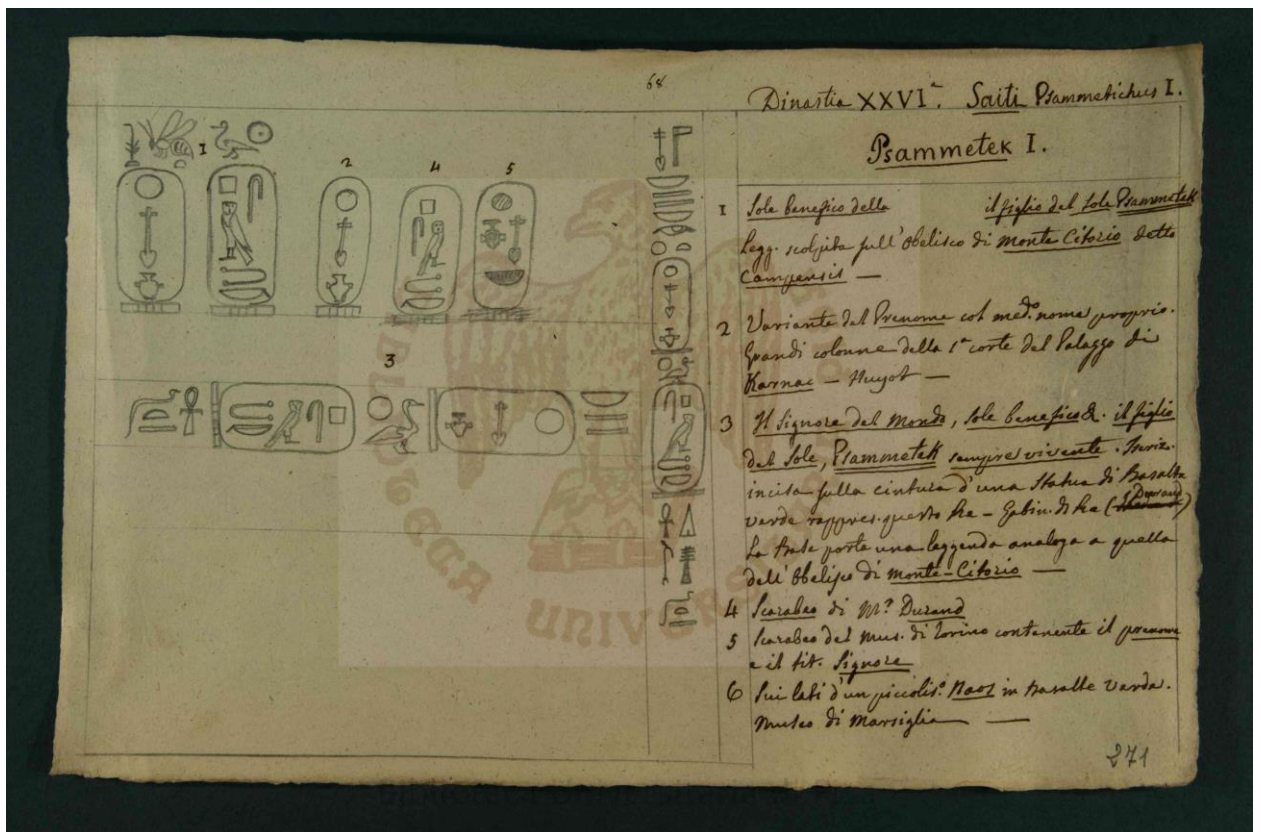 68
Dinastia XXVIª. Saiti Psammetichus I.
Psammetek I.
1
2
4
5
3
1 Sole benefico della il figlio del Sole Psammetek
Legg. scolpita sull'obelisco di Monte Citorio detto
Campensis —
2 Variante del Prenome col med.º nome proprio.
Grandi colonne della 1ª corte del Palazzo di
Karnac — Huyot —
3 Il Signore del Mondo, Sole benefico &. il figlio
del Sole, Psammetek sempre vivente. Inscriz.
incisa sulla cintura d'una Statua di Basalto
verde rappres. questo Re — Gabin. di Re (Durand)
La base porta una leggenda analoga a quella
dell'Obelisco di Monte-Citorio —
4 Scarabeo di Mr. Durand
5 Scarabeo del Mus. di Torino contenente il prenome
e il tit. Signore
6 Sui lati d'un piccolis.º Naos in basalte verde.
Museo di Marsiglia —
271
UNIVERS